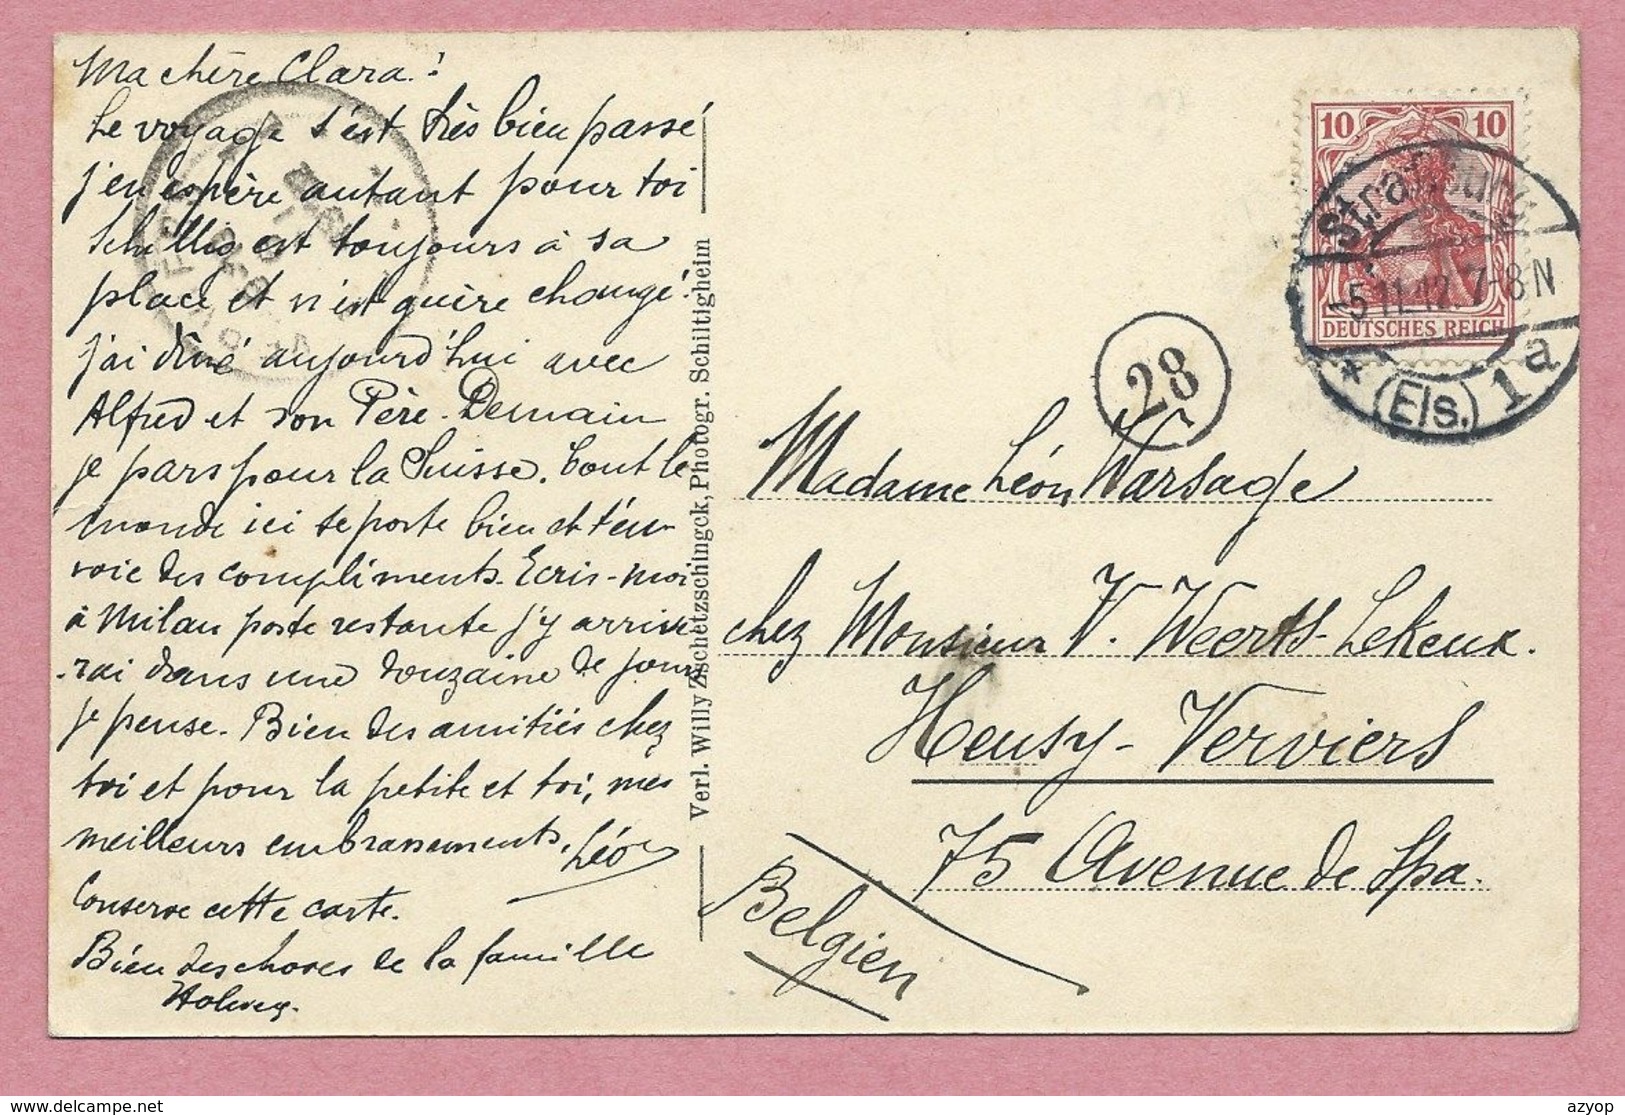 Ma chère Clara!
Le voyage s'est très bien passé
j'en espère autant pour toi
est toujours à sa
place et n'est guère changé.
j'ai diné aujourd'hui avec
Alfred et son Père. Demain
je pars pour la Suisse. Tout le
monde ici se porte bien et t'en-
voie des compliments. Ecris-moi
à Milan poste restante j'y arrive
-rai dans une douzaine de jours
je pense. Bien des amitiés chez
toi et pour la petite et toi, mes
meilleurs embrassements.
Léo
Conserve cette carte.
Bien des choses de la famille
Verl. Willy Zschetzschingck, Photogr. Schiltigheim
10 10
DEUTSCHES REICH
Strassburg
5.11.12. 7-8 N
* (Els.) 1 a
28
Madame Léon Warsage
chez Monsieur V. Weerts-Lekeux.
Heusy-Verviers
75 Avenue de Spa.
Belgien
www.delcampe.net
azyop